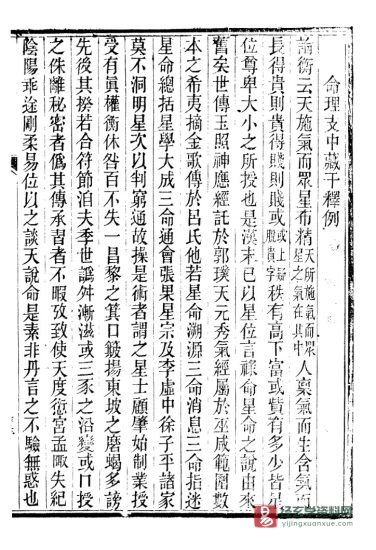 命理支中藏干釋例
論衡云天施氣而眾星布精天所施氣而眾星之氣在其中人稟氣而生含氣而
長得貴則貴得賤則賤或上疑脫貴字秩有高下富或貲有多少皆星
位尊卑大小之所授也是漢末已以星位言祿命星命之說由來
舊矣世傳玉照神應經託於郭璞天元秀氣經屬於巫咸範圍數
本之希夷摘金歌傳於呂氏他若星命溯源三命消息三命指迷
星命總括星學大成三命通會張果星宗及李虛中徐子平諸家
莫不洞明星次以判窮通故操是術者謂之星士顧肇始制業授
受有眞權衡休咎百不失一昌黎之箕口簸揚東坡之磨蝎多謗
先後其揆若合符節洎夫季世譌舛漸滋或三豕之沿變或口授
之侏離秘密者僞其傳承者不暇攷致使天度宮孟陬失紀
陰陽乖途剛柔易位以之談天說命是素非丹言之不驗無惑也
易玄学资料网
yijingxuanxue.com